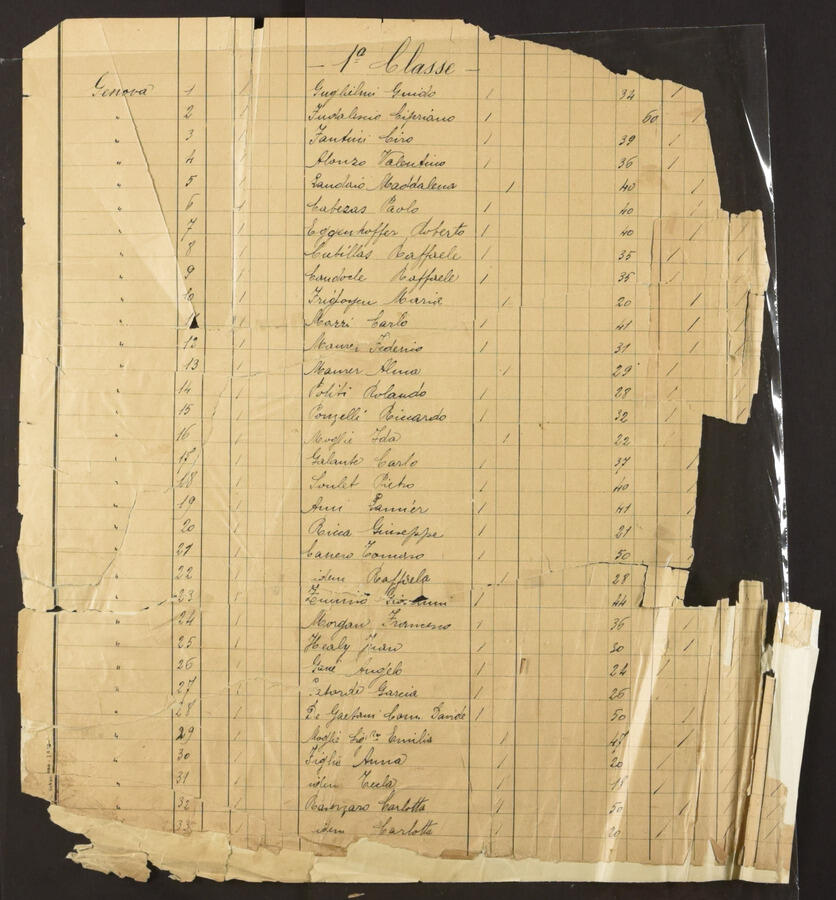 - 1ª Classe -
Genova 1 1 Guglielmi Guido 1 34 1
" 2 1 Cipriano 1 60 1
" 3 1 Fantini Ciro 1 39 1
" 4 1 Alonzo Valentino 1 36 1
" 5 1 Maddalena 1 40 1
" 6 1 Cabezas Paolo 1 40 1
" 7 1 Eggenhoffer Roberto 1 40 1
" 8 1 Cutillas Raffaele 1 35 1
" 9 1 Raffaele 1 35 1
" 10 1 Maria 1 20 1
" 11 1 Mazzi Carlo 1 41 1
" 12 1 Maurer Federico 1 31 1
" 13 1 Maurer Alma 1 29 1
" 14 1 Politi Rolando 1 28 1
" 15 1 Ponzelli Riccardo 1 32 1
" 16 1 Moglie Ida 1 22
" 17 1 Galante Carlo 1 37 1
" 18 1 Soulet Pietro 1 40 1
" 19 1 1 41 1
" 20 1 Ricca Giuseppe 1 21 1
" 21 1 Tomaso 1 50 1
" 22 1 idem Raffaela 1 28 1
" 23 1 1 44
" 24 1 Morgan Francesco 1 36 1
" 25 1 Healy Juan 1 30 1
" 26 1 Angelo 1 24 1
" 27 1 Garcia 1 26
" 28 1 De Gaetani Comm Davide 1 50 1
" 29 1 Moglie Emilia 1 47 1
" 30 1 Figlia Anna 1 20 1
" 31 1 idem Tecla 1 18 1
" 32 1 Carlotta 1 50 1
" 33 1 idem Carlotta 1 20 1